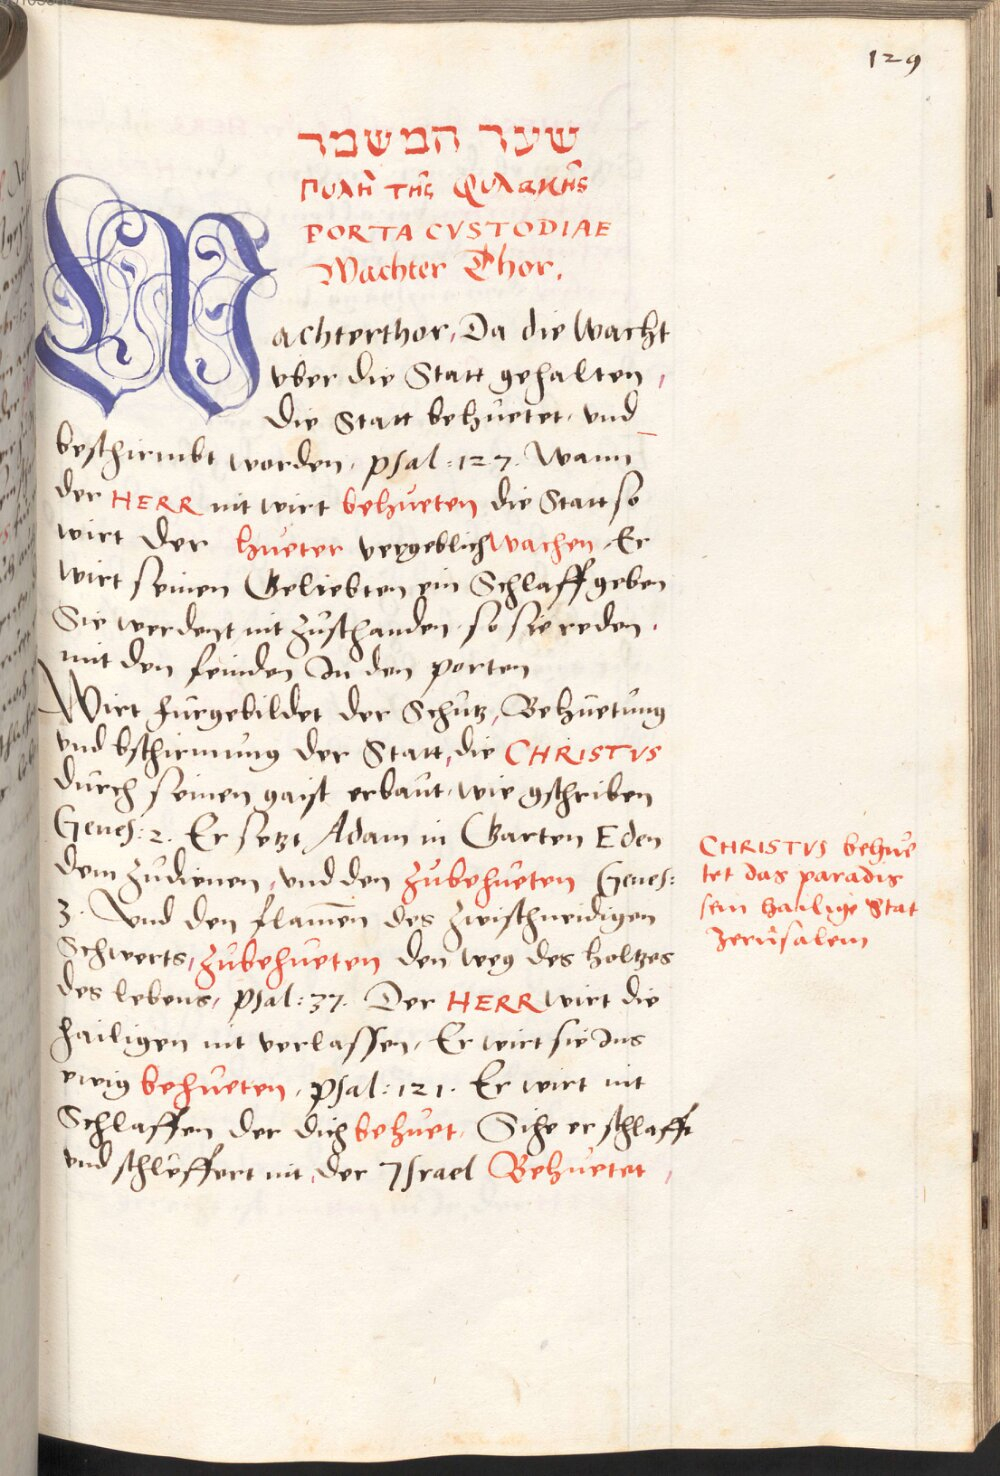 129
שער המשמר
πυλῆ τῆς φυλακῆς
PORTA CVSTODIAE
Wachter Thor.
Wachterthor, Da die Wacht
vber die Statt gehalten,
die Statt behuetet, und
beschirmbt worden, psal: 127. Wann
der HERR nit wirt behueten die Statt so
wirt der hueter vergeblich wachen, Er
wirt seinen Geliebten ein Schlaff geben
Sie werdent nit zuschanden, so sie reden,
mit den feinden In den porten
Wirt furgebildet der Schutz, Behuetung
vnd bschirmung der Statt, die CHRISTVS
durch seinen gaist erbaut, wie gschriben
Genes: 2. Er setzt Adam in Garten Eden
dem zudienen, vnd den zubehueten Genes:
3. Vnd den flamen des zwischneidigen
Schwerts, zubehueten den weg des holtzes
des lebens, Psal: 37. Der HERR wirt die
hailigen nit verlassen, Er wirt sie Ins
ewig behueten, psal: 121. Er wirt nit
Schlaffen der dich behuet, Sihe er schlafft
vnd schleffert nit, der Israel Behuetet,
CHRISTVS behue
tet das paradis
sein hailige Stat
Jerusalem